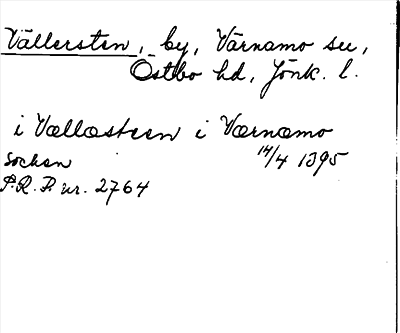 Vällersten, by, Värnamo sn,
Östbo hd, Jönk. l.
i Wællæsteen i Wærnæmo
Sochen 14/4 1395
P.R.P. nr. 2764